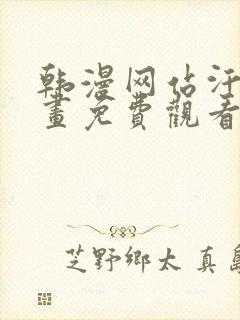 韩漫网站汗
畫免費觀看
芝野鄉太真島